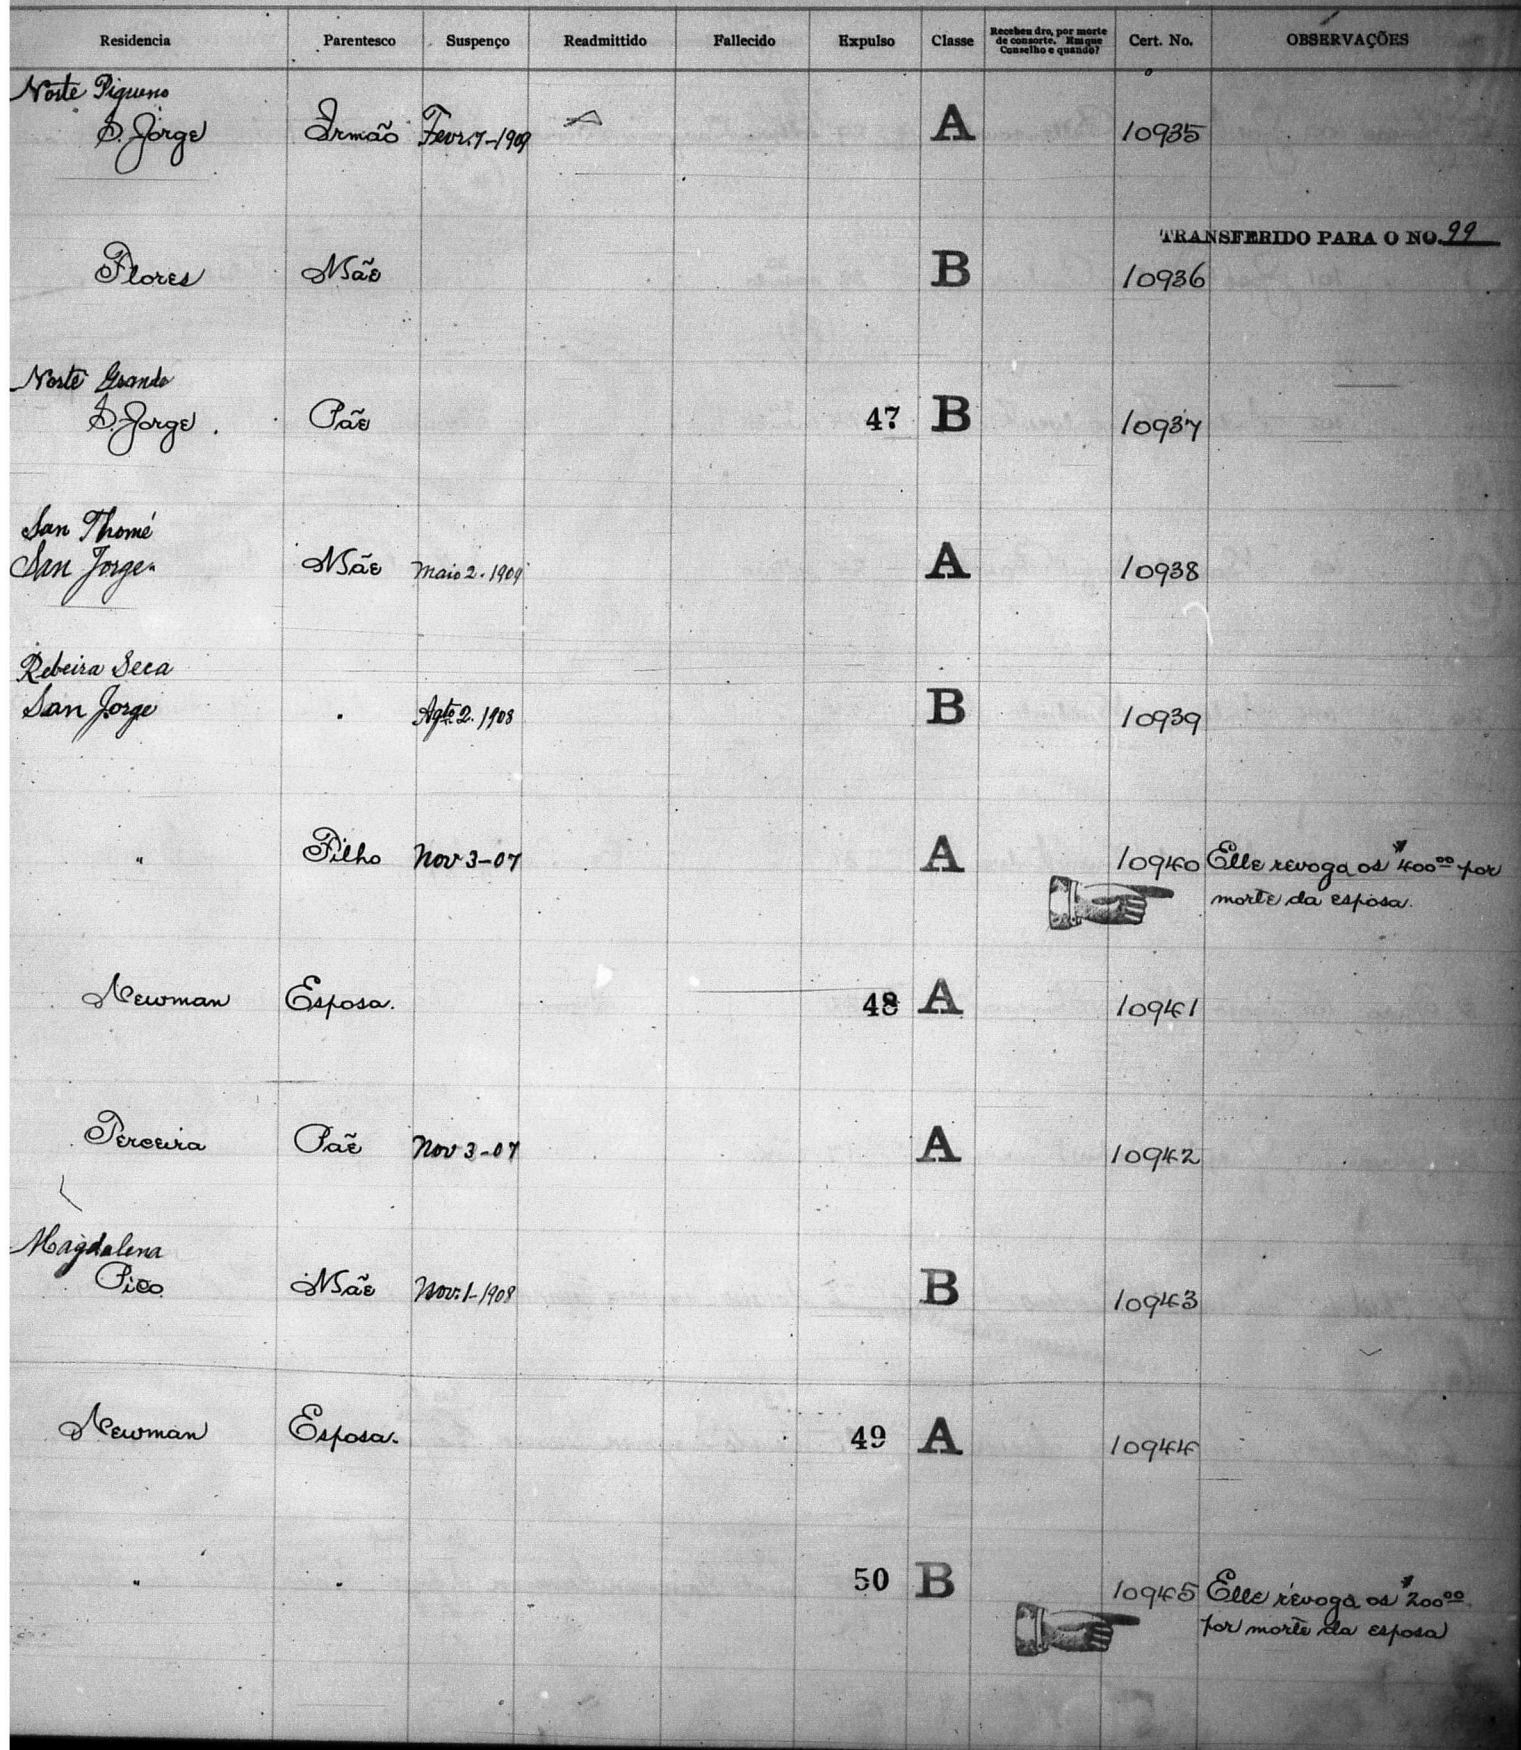 Residencia Parentesco Suspenço Readmittido Fallecido Expulso Classe Recebeu dro, por morte de consorte. Em que Conselho e quando? Cert. No. OBSERVAÇÕES
Norte Piqueno
S. Jorge Irmão Fevr. 7-1909 A 10935
TRANSFERIDO PARA O NO. 99
Flores Mãe B 10936
Norte Grande
S. Jorge. Pãe 47 B 10937
San Thomé
San Jorge" Mãe Maio 2. 1909 A 10938
Rebeira Seca
San Jorge " Agto 2. 1908 B 10939
" Filho Nov 3-07 A 10940 Elle revoga os $400⁰⁰ por
morte da esposa.
Newman Esposa. 48 A 10941
Terceira Pãe Nov 3-07 A 10942
Magdalena
Pico Mãe Nov. 1-1908 B 10943
Newman Esposa. 49 A 10944
" " 50 B 10945 Elle revoga os $200⁰⁰
por morte da esposa